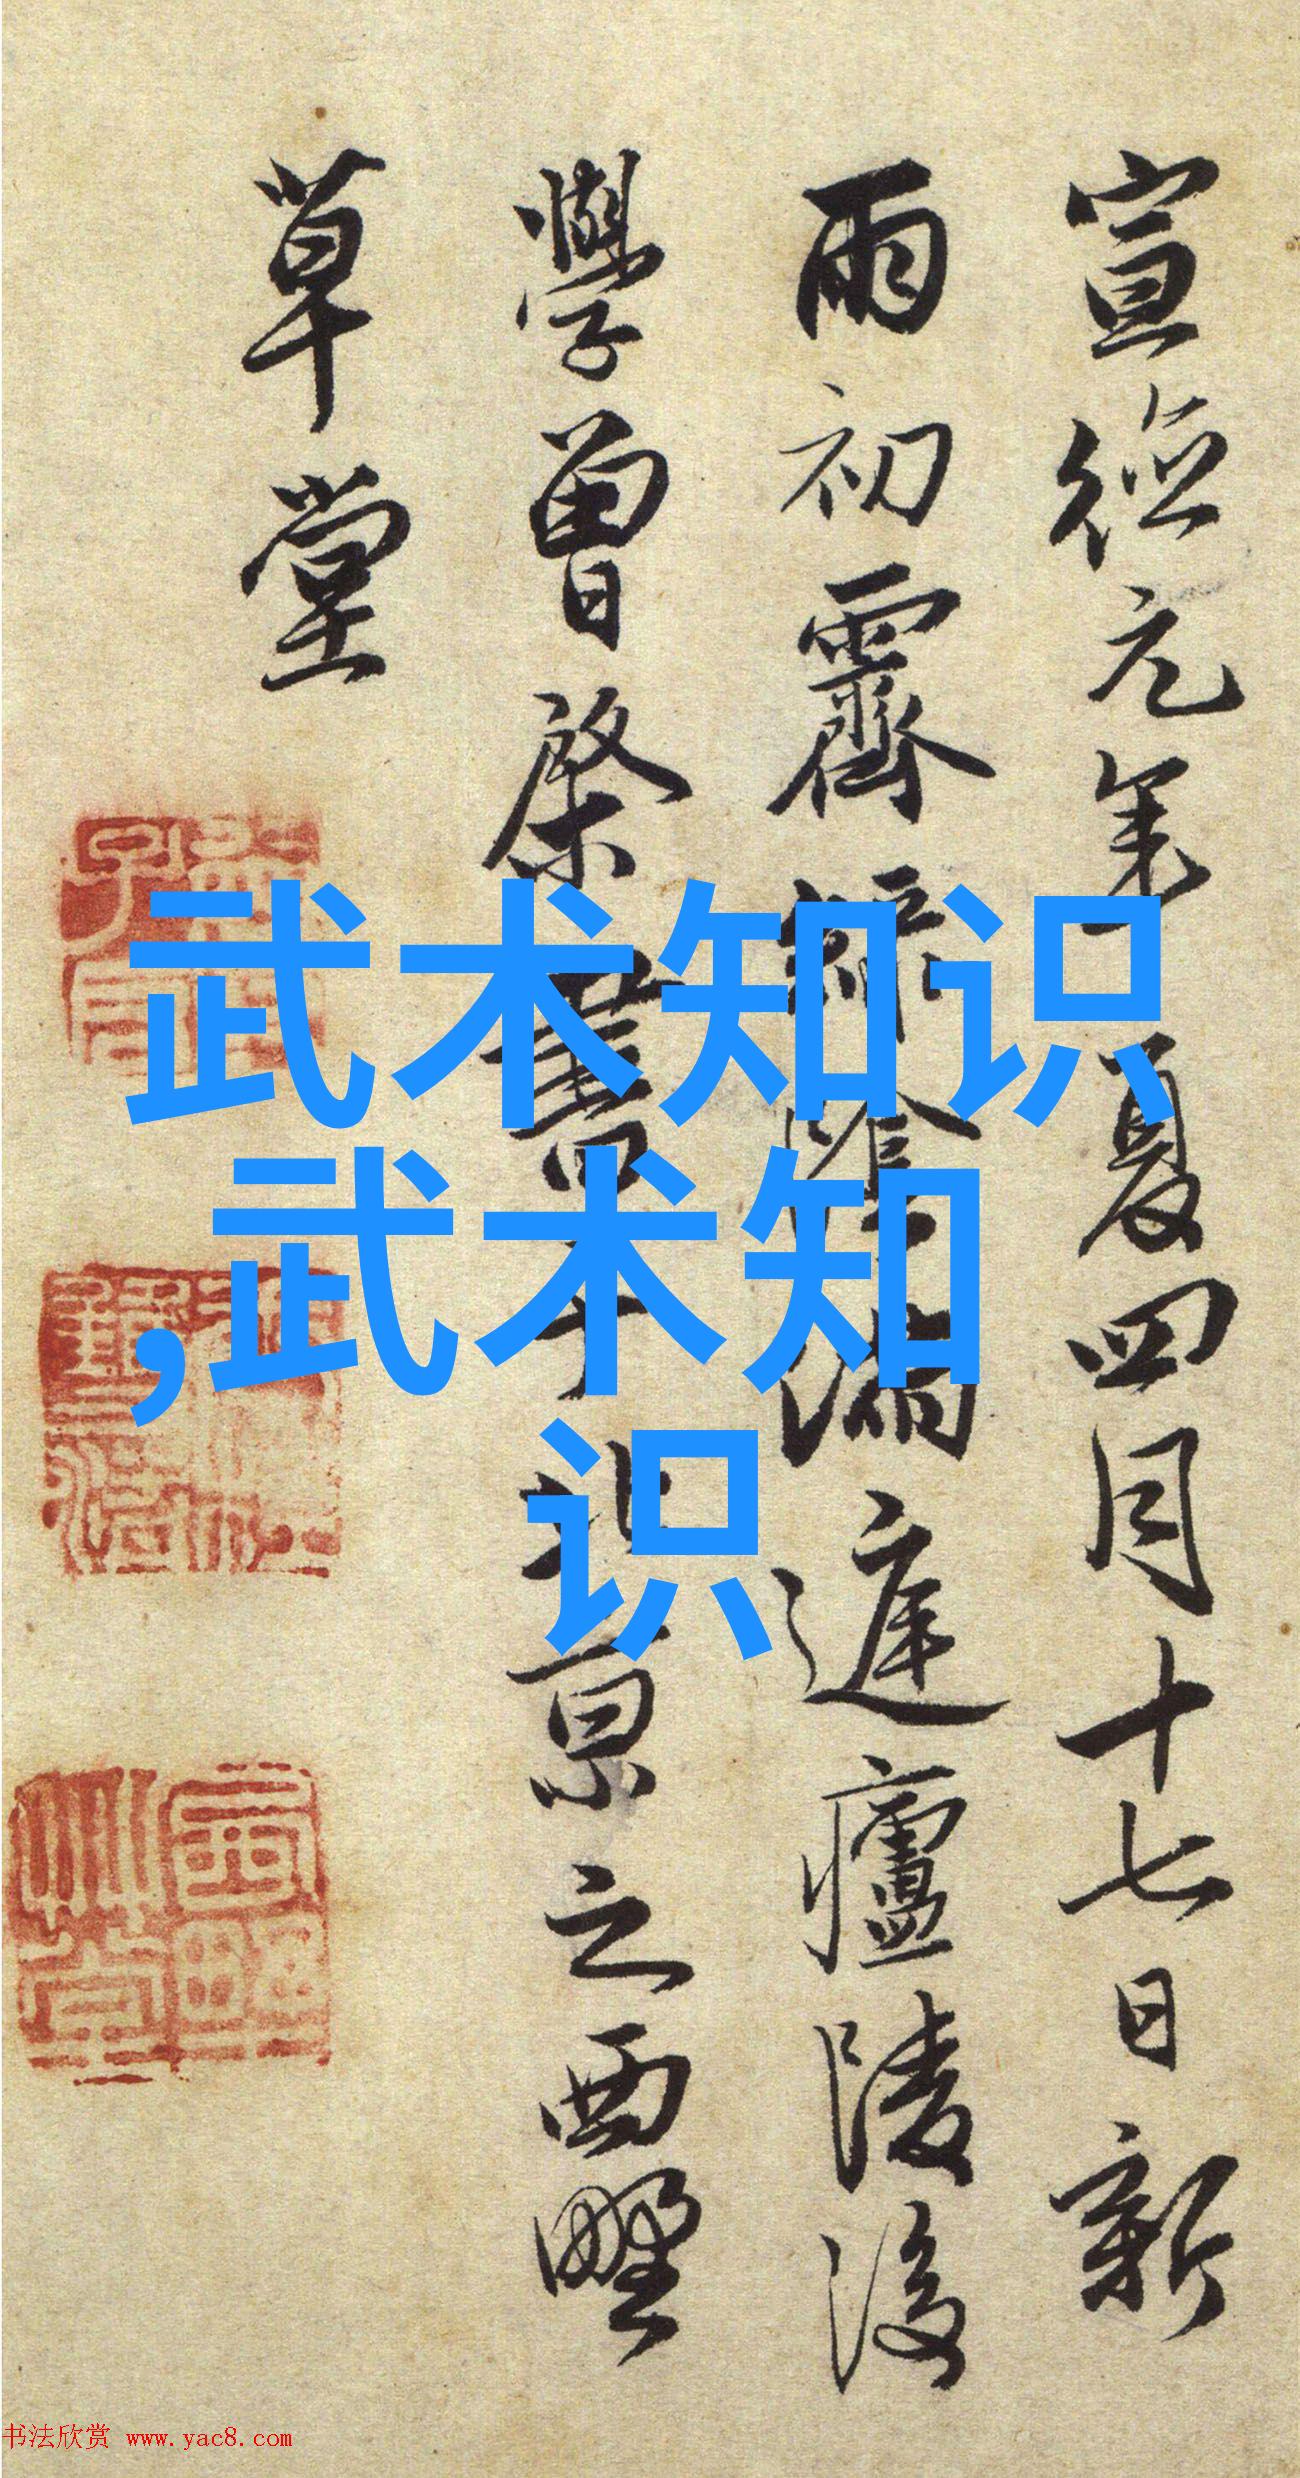 宣德元年夏四月十七日新
雨初霽綠陰滿庭廬陵後
學曾棨書于北京之西野
草堂
武术知识
,武术知
识
书法欣赏 www.yac8.com